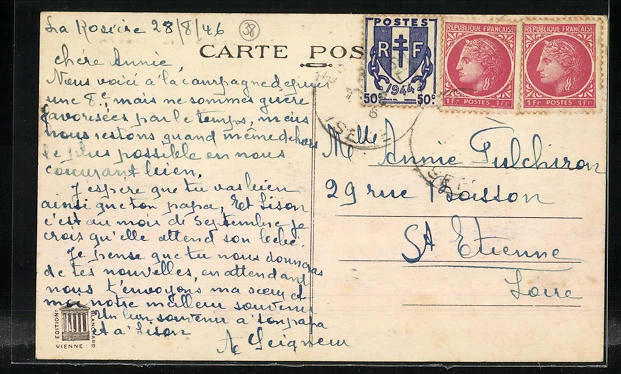 La Rosière 28/8/46
38
CARTE POS
chère Annie,
Nous voici à la campagne depuis
une 8e, mais ne sommes guère
favorisées par le temps, mais
nous restons quand même dehors
le plus possible en nous
couvrant bien.
J'espère que tu vas bien
ainsi que ton papa, Et Lison
c'est au mois de Septembre je
crois qu'elle attend son bébé.
Je pense que tu nous donneras
de tes nouvelles, en attendant
nous t'envoyons ma sœur et
moi notre meilleur souvenir
Un bon souvenir à ton papa
et à Lison
A. Seigneur
POSTES
RF
1944
50c 50c
REPUBLIQUE FRANÇAISE
1Fr POSTES 1Fr
REPUBLIQUE FRANÇAISE
1Fr POSTES 1Fr
ISERE
Mlle Annie Pulchiron
29 rue Basson
St Etienne
Loire
EDITIONS
BLANCHARD
VIENNE